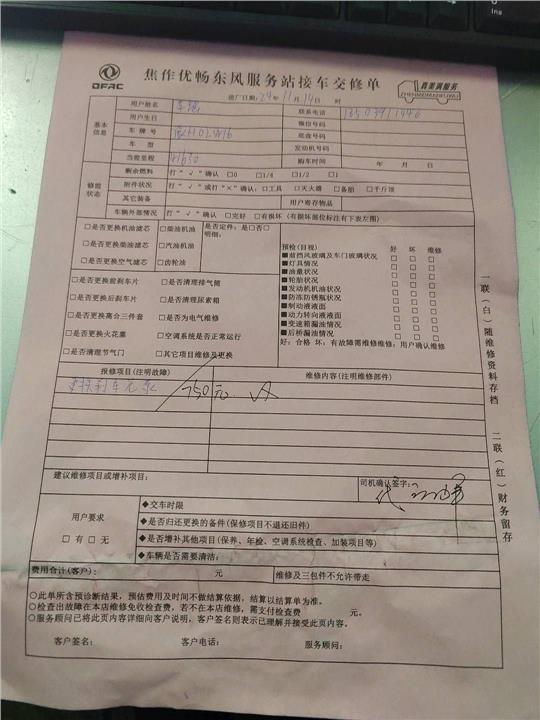 DFAC
焦作优畅东风服务站接车交修单
真美满服务
ZHENMEIMANFUWU
进厂日期:24年11月14日 时
基本信息
用户姓名
联系电话
用户生日
微信号码
车 牌 号
底盘号码
车 型
发动机号码
当前里程
购车时间 年 月 日
修前状态
剩余燃料 打“√”确认 □0 □1/4 □1/2 □1
附件状况 打“√”或打“×”确认:□工具 □灭火器 □备胎 □千斤顶
其它装备
用户寄存物品
车辆外部情况 打“√”确认 □完好 □有损坏(有损坏部位标注有下表左图)
□是否更换机油滤芯 □柴油机油
□是否更换柴油滤芯 □汽油机油
□是否更换空气滤芯 □齿轮油
是否定件:是□否□
明细:
□是否更换前刹车片 □是否清理排气筒
□是否更换后刹车片 □是否清理尿素箱
□是否更换离合三件套 □是否为电气维修
□是否更换火花塞 □空调系统是否正常运行
□是否清理节气门 □其它项目维修及更换
预检(目视) 好 坏 维修
■前挡风玻璃及车门玻璃状况 □ □ □
■灯具情况 □ □ □
■油量状况 □ □ □
■轮胎状况 □ □ □
■发动机机油状况 □ □ □
■防冻防锈瓶状况 □ □ □
■制动液液面 □ □ □
■动力转向液液面 □ □ □
■变速箱漏油情况 □ □ □
■后桥漏油情况 □ □ □
好:合格 坏:有故障需维修维修:用户确认维修
报修项目(注明故障)
维修内容(注明维修部件)
750元
建议维修项目或增补项目:
司机确认签字:
用户要求
□ 有 □ 无
◆交车时限
◆是否归还更换的备件(保修项目不退还旧件)
◆是否增补其他项目(保养、年检、空调系统检查、加装项目等)
◆车辆是否需要清洁:
费用合计(客户): 元
维修及三包件不允许带走
○此单所含预诊断结果,预估费用及时间不做结算依据,结算以结算单为准。
○检查出故障在本店维修免收检查费,若不在本店维修,需支付检查费 元。
○服务顾问已将此页内容详细向客户说明,客户签名则表示已理解并接受此页内容。
客户签名: 客户电话: 服务顾问:
一联(白)随维修资料存档
二联(红)财务留存